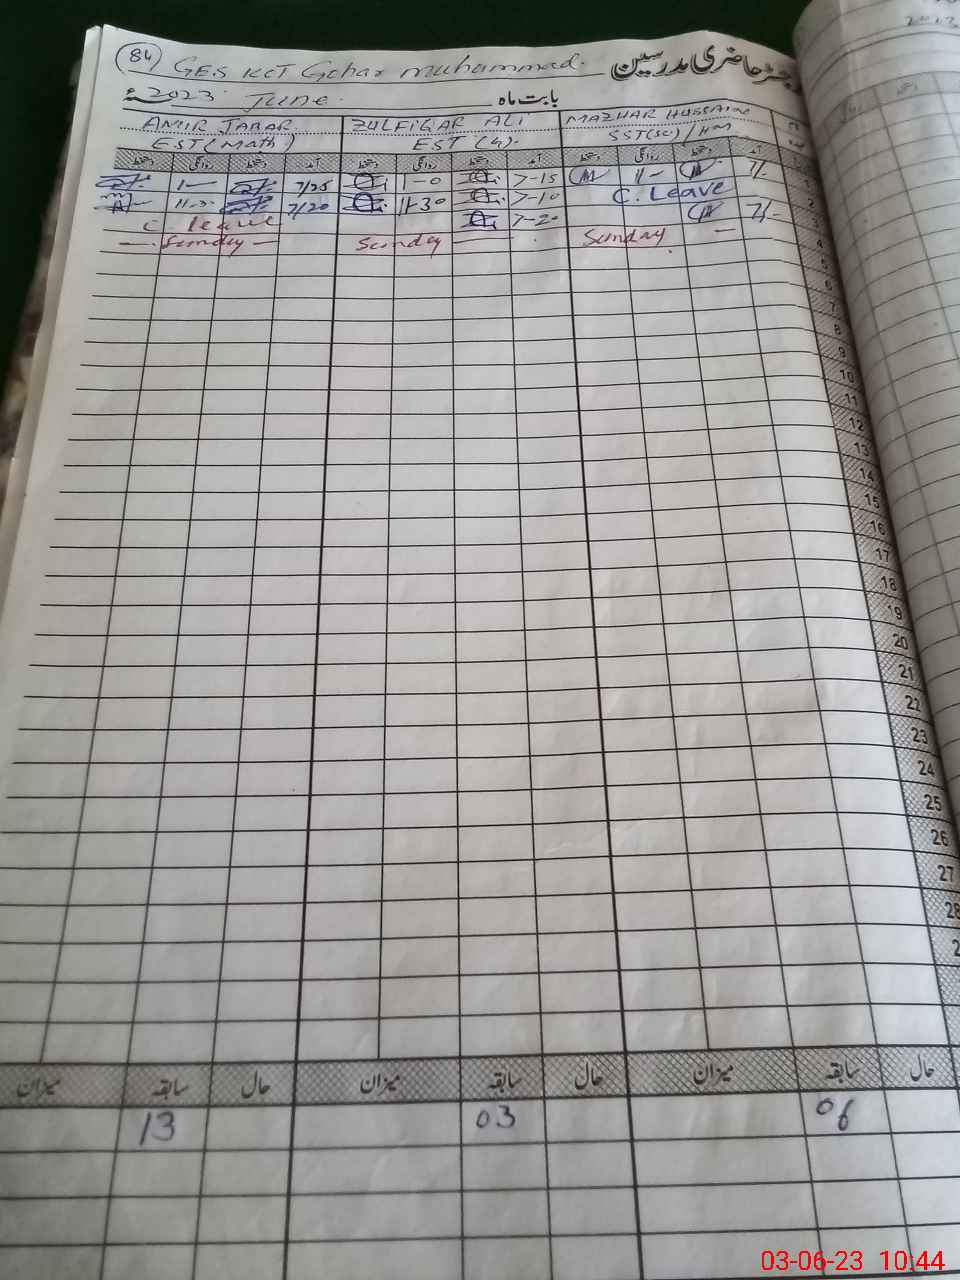 84 GES KCT Gohar Muhammad. رجسٹر حاضری مدرسین
بابت ماہ June 2023ء
AMIR JABAR ZULFIQAR ALI MAZHAR HUSSAIN
EST (Math) EST (G). SST(SC)/HM
دستخط روانگی دستخط آمد دستخط روانگی دستخط آمد دستخط روانگی دستخط آمد
1- 7/25 1-0 7-15 11- 7/- 1
7/20 11-30 7-10 C. Leave 2
C. leave 7-20 7/- 3
Sunday Sunday Sunday 4
5
6
7
8
9
10
11
12
13
14
15
16
17
18
19
20
21
22
23
24
25
26
27
28
2
میزان سابقہ حال میزان سابقہ حال میزان سابقہ حال
13 03 06
03-06-23 10:44